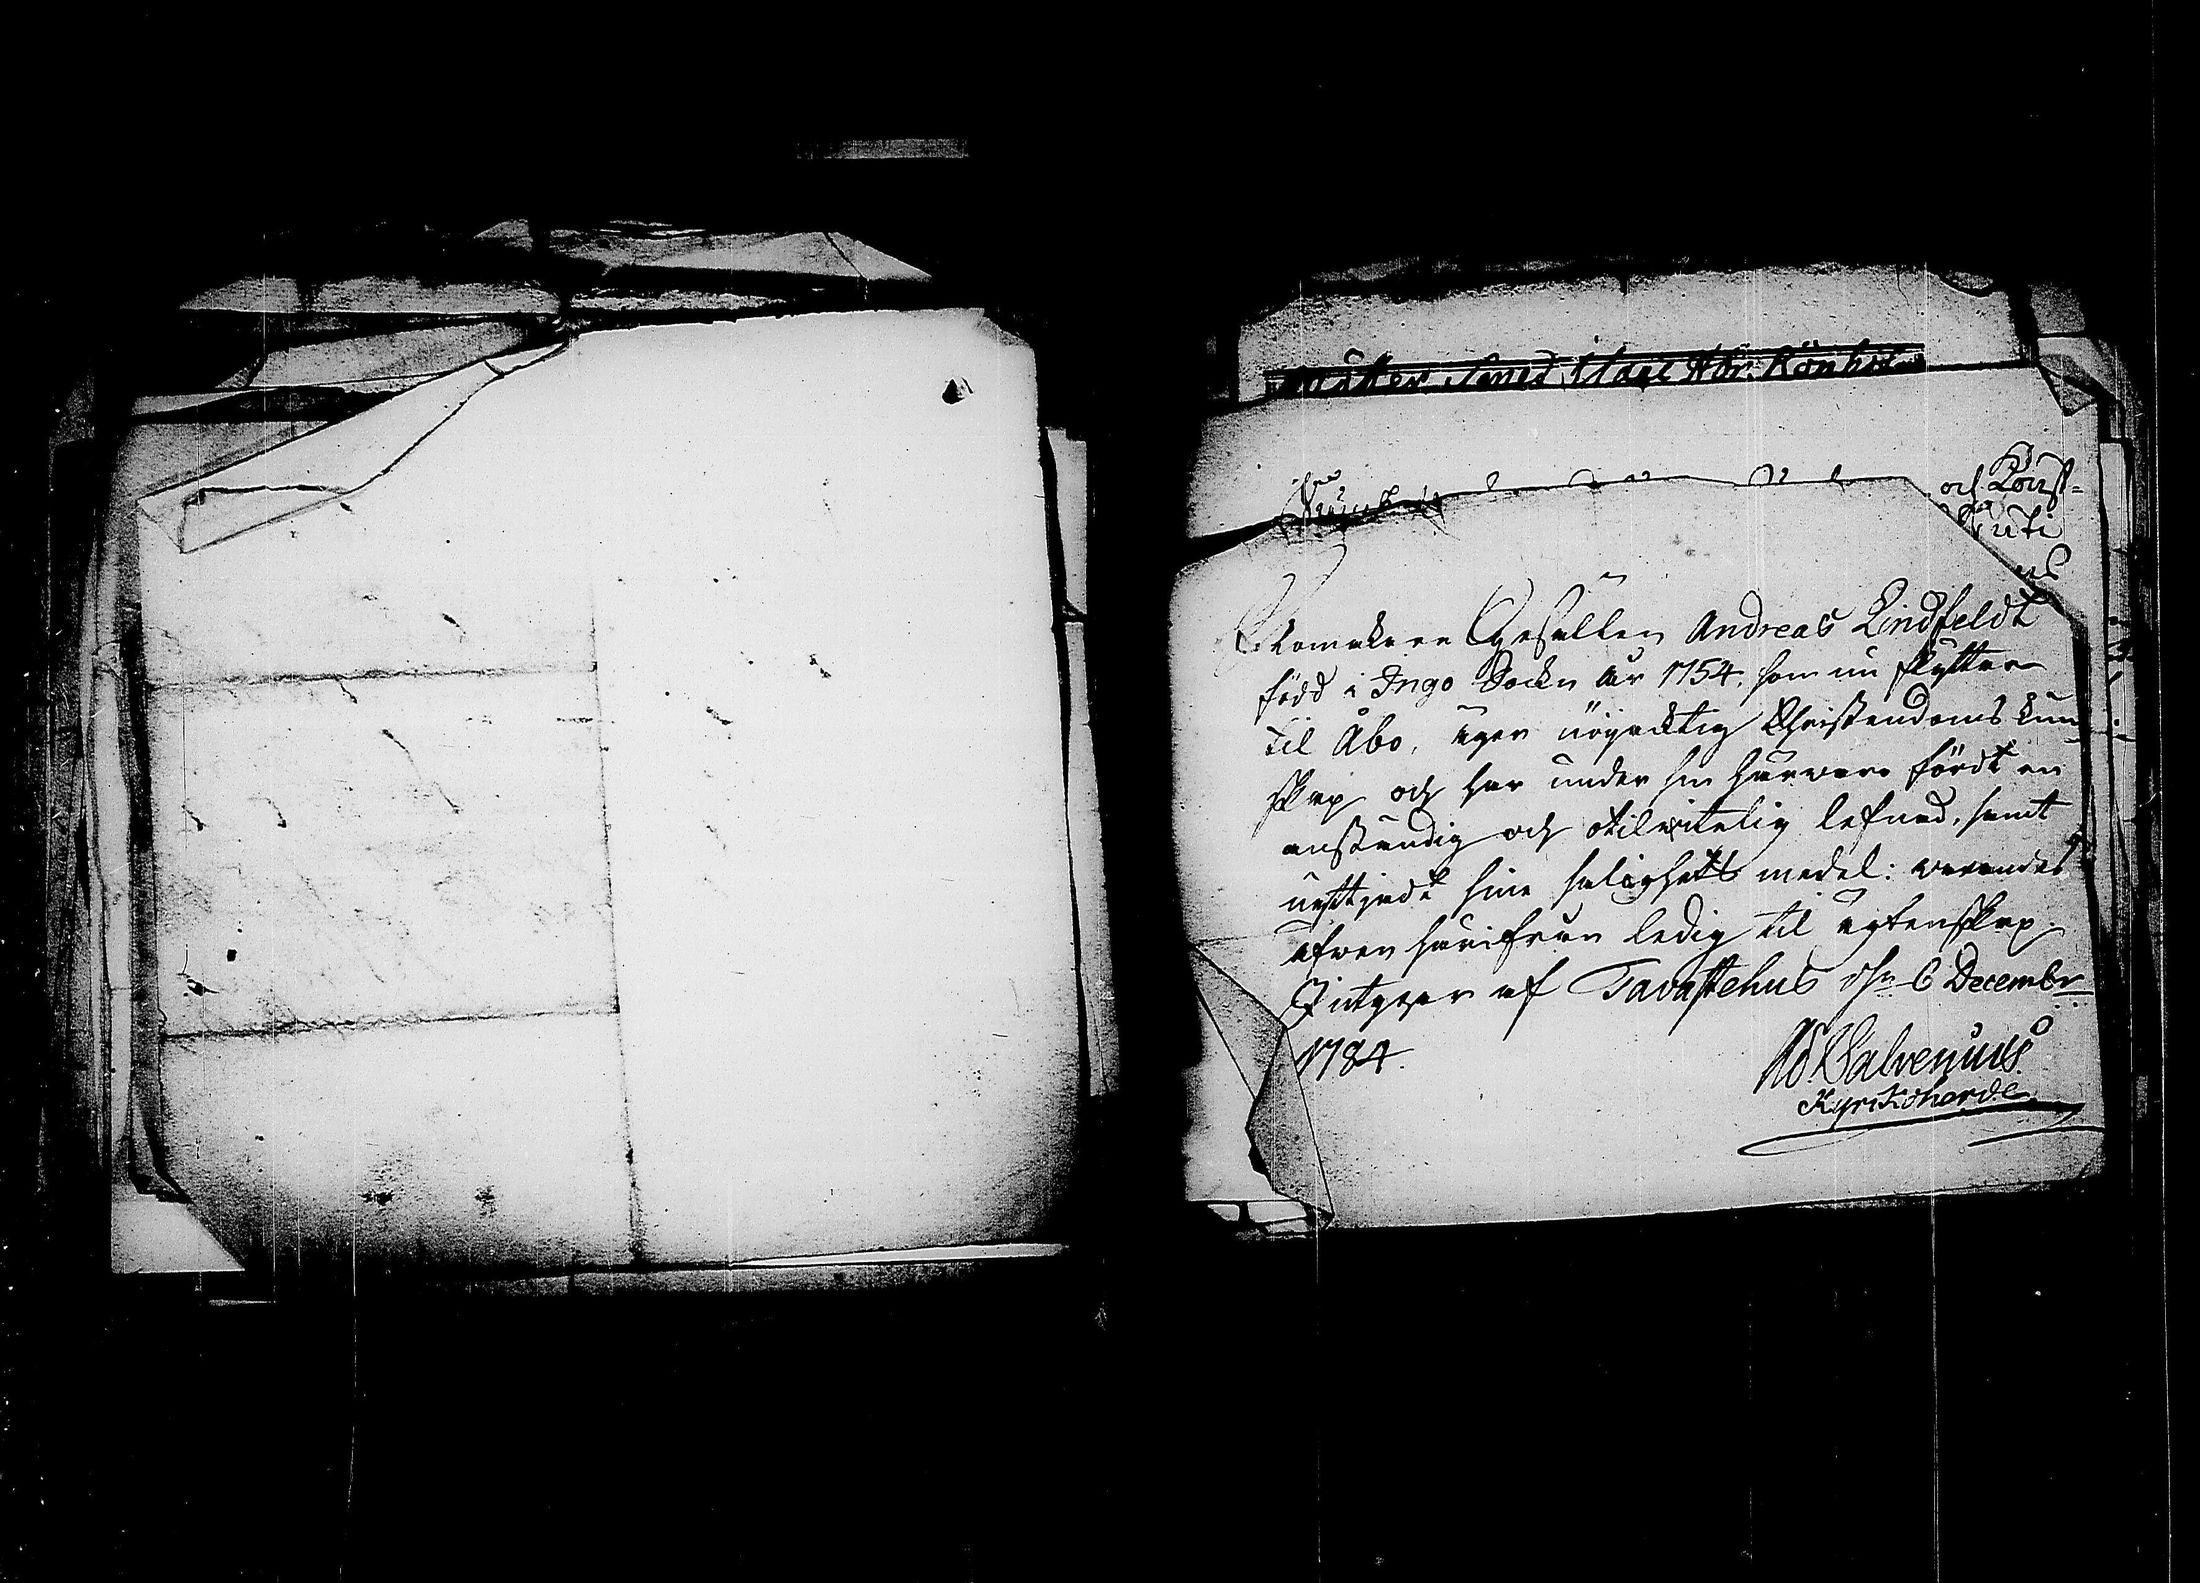 och Konst-
Skomakare Gesällen Andreas Lindfeldt
född i Ingo Sockn år 1754, som nu flyttar
til Åbo, äger nöyacktig Christendoms kun
skap och har under sin härvaro fördt en
anständig och otilvitelig lefnad, samt
nyttjadt sine salighets medel: varandes
äfven härifrån ledig til ägtenskap.
Intygar af Tavastehus d. 6 Decembr
1784.
Ad. Salvenius
Kyrckoherde